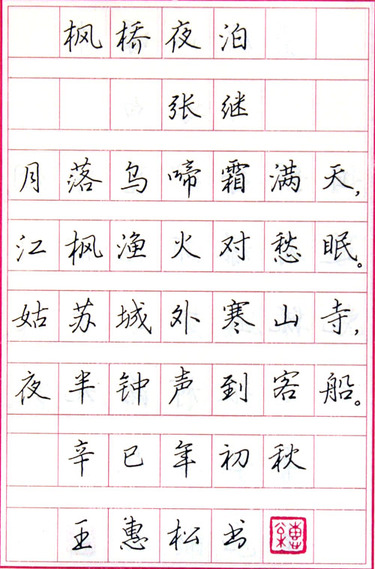 枫桥夜泊
张继
月落乌啼霜满天,
江枫渔火对愁眠。
姑苏城外寒山寺,
夜半钟声到客船。
辛巳年初秋
王惠松书